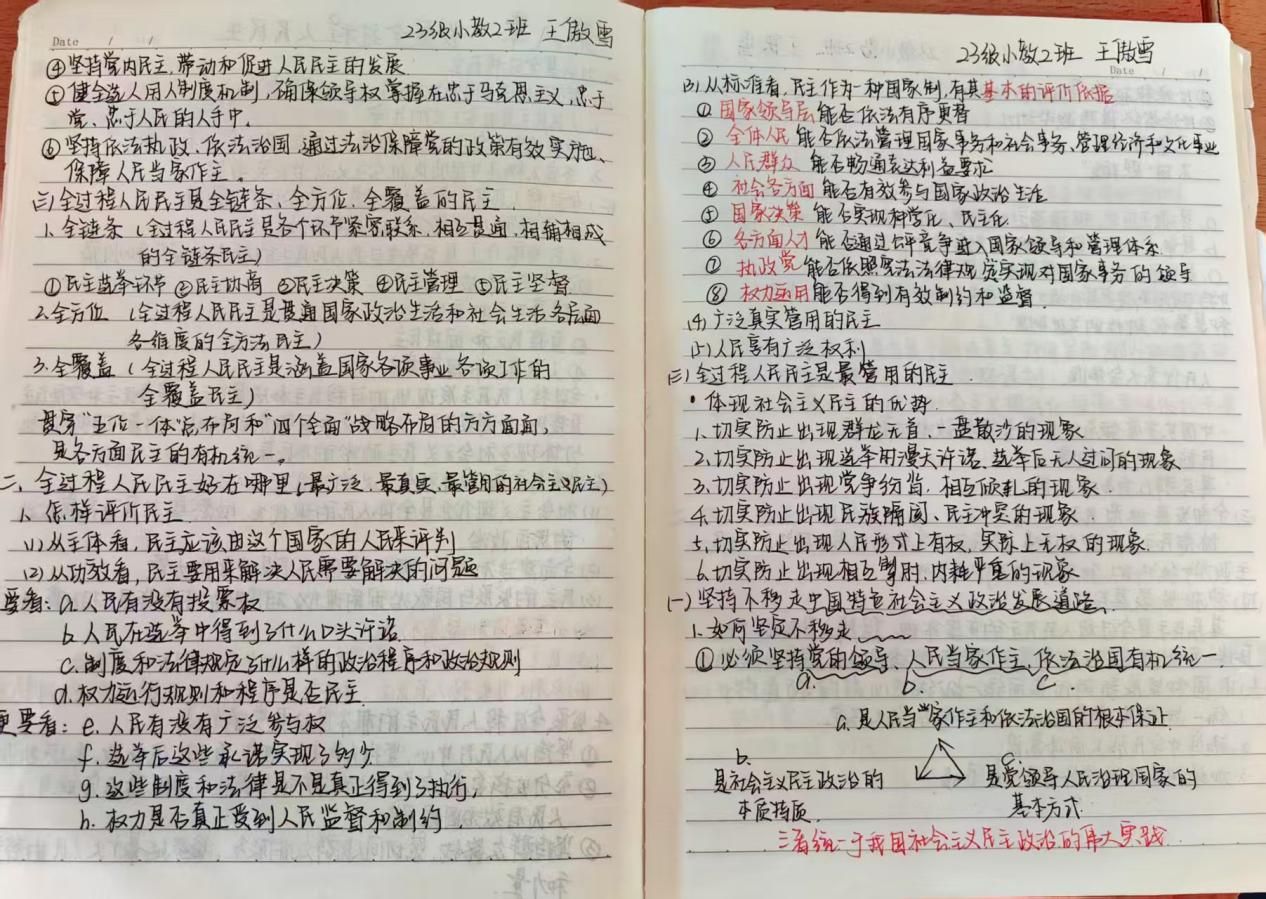 23级小教2班 王傲雪
Date / /
④坚持党内民主,带动和促进人民民主的发展
⑤健全选人用人制度机制,确保领导权掌握在忠于马克思主义、忠于
党、忠于人民的人手中。
⑥坚持依法执政、依法治国,通过法治保障党的政策有效实施、
保障人民当家作主。
(三)全过程人民民主是全链条、全方位、全覆盖的民主
1、全链条(全过程人民民主是各个环节紧密联系,相互贯通,相辅相成
的全链条民主)
①民主选举环节 ②民主协商 ③民主决策 ④民主管理 ⑤民主监督
2、全方位(全过程人民民主是贯通国家政治生活和社会生活各层面
各维度的全方位民主)
3、全覆盖(全过程人民民主是涵盖国家各项事业各项工作的
全覆盖民主)
贯穿“五位一体”总布局和“四个全面”战略布局的方方面面,
是各方面民主的有机统一。
二、全过程人民民主好在哪里(最广泛、最真实、最管用的社会主义民主)
1、怎样评价民主
(1)从主体看,民主应该由这个国家的人民来评判
(2)从功效看,民主要用来解决人民需要解决的问题
要看:a.人民有没有投票权
b.人民在选举中得到了什么口头许诺
c.制度和法律规定了什么样的政治程序和政治规则
d.权力运行规则和程序是否民主
更要看:e.人民有没有广泛参与权
f.选举后这些承诺实现了多少
g.这些制度和法律是不是真正得到了执行,
h.权力是否真正受到人民监督和制约.
23级小教2班 王傲雪
Date / /
(3)从标准看,民主作为一种国家制,有其基本的评价依据
①国家领导层能否依法有序更替
②全体人民能否依法管理国家事务和社会事务、管理经济和文化事业
③人民群众能否畅通表达利益要求
④社会各方面能否有效参与国家政治生活
⑤国家决策能否实现科学化、民主化
⑥各方面人才能否通过公平竞争进入国家领导和管理体系
⑦执政党能否依照宪法法律规定实现对国家事务的领导
⑧权力运用能否得到有效制约和监督
(4)广泛真实管用的民主
(二)人民享有广泛权利
(三)全过程人民民主是最管用的民主
·体现社会主义民主的优势
1、切实防止出现群龙无首、一盘散沙的现象
2、切实防止出现选举时漫天许诺、选举后无人过问的现象
3、切实防止出现党争纷沓、相互倾轧的现象
4、切实防止出现民族隔阂、民主冲突的现象
5、切实防止出现人民形式上有权,实际上无权的现象
6、切实防止出现相互掣肘、内耗严重的现象
(一)坚持不移走中国特色社会主义政治发展道路、
1、如何坚定不移走
①必须坚持党的领导、人民当家作主、依法治国有机统一.
a. b. c.
a.是人民当家作主和依法治国的根本保证
b. c.
是社会主义民主政治的 是党领导人民治理国家的
本质特质 基本方式
三者统一于我国社会主义民主政治的伟大实践